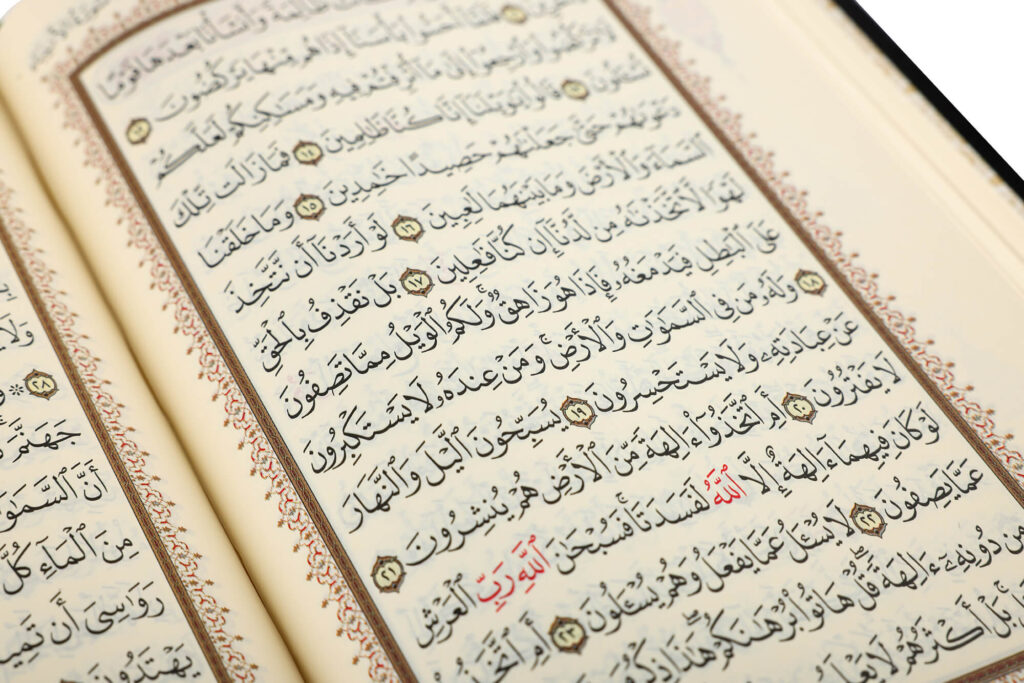 ظَالِمَةً وَأَنشَأْنَا بَعْدَهَا قَوْمًا
فَلَمَّآ أَحَسُّوا۟ بَأْسَنَآ إِذَا هُم مِّنْهَا يَرْكُضُونَ ١٢
لَا تَرْكُضُوا۟ وَٱرْجِعُوٓا۟ إِلَىٰ مَآ أُتْرِفْتُمْ فِيهِ وَمَسَٰكِنِكُمْ لَعَلَّكُمْ
تُسْـَٔلُونَ ١٣ قَالُوا۟ يَٰوَيْلَنَآ إِنَّا كُنَّا ظَٰلِمِينَ ١٤ فَمَا زَالَت تِّلْكَ
دَعْوَىٰهُمْ حَتَّىٰ جَعَلْنَٰهُمْ حَصِيدًا خَٰمِدِينَ ١٥ وَمَا خَلَقْنَا
ٱلسَّمَآءَ وَٱلْأَرْضَ وَمَا بَيْنَهُمَا لَٰعِبِينَ ١٦ لَوْ أَرَدْنَآ أَن نَّتَّخِذَ
لَهْوًا لَّٱتَّخَذْنَٰهُ مِن لَّدُنَّآ إِن كُنَّا فَٰعِلِينَ ١٧ بَلْ نَقْذِفُ بِٱلْحَقِّ
عَلَى ٱلْبَٰطِلِ فَيَدْمَغُهُۥ فَإِذَا هُوَ زَاهِقٌ ۚ وَلَكُمُ ٱلْوَيْلُ مِمَّا تَصِفُونَ
١٨ وَلَهُۥ مَن فِى ٱلسَّمَٰوَٰتِ وَٱلْأَرْضِ ۚ وَمَنْ عِندَهُۥ لَا يَسْتَكْبِرُونَ
عَنْ عِبَادَتِهِۦ وَلَا يَسْتَحْسِرُونَ ١٩ يُسَبِّحُونَ ٱلَّيْلَ وَٱلنَّهَارَ
لَا يَفْتُرُونَ ٢٠ أَمِ ٱتَّخَذُوٓا۟ ءَالِهَةً مِّنَ ٱلْأَرْضِ هُمْ يُنشِرُونَ ٢١
لَوْ كَانَ فِيهِمَآ ءَالِهَةٌ إِلَّا ٱللَّهُ لَفَسَدَتَا ۚ فَسُبْحَٰنَ ٱللَّهِ رَبِّ ٱلْعَرْشِ
عَمَّا يَصِفُونَ ٢٢ لَا يُسْـَٔلُ عَمَّا يَفْعَلُ وَهُمْ يُسْـَٔلُونَ ٢٣ أَمِ
مِن دُونِهِۦٓ ءَالِهَةً ۖ قُلْ هَاتُوا۟ بُرْهَٰنَكُمْ ۖ هَٰذَا ذِكْرُ
بَلْ أَكْثَرُهُمْ لَا
٢٨
جَهَنَّمَ
أَنَّ ٱلسَّمَٰوَ
مِنَ ٱلْمَآءِ كُلَّ
رَوَٰسِىَ أَن تَمِيدَ
يَهْتَدُونَ